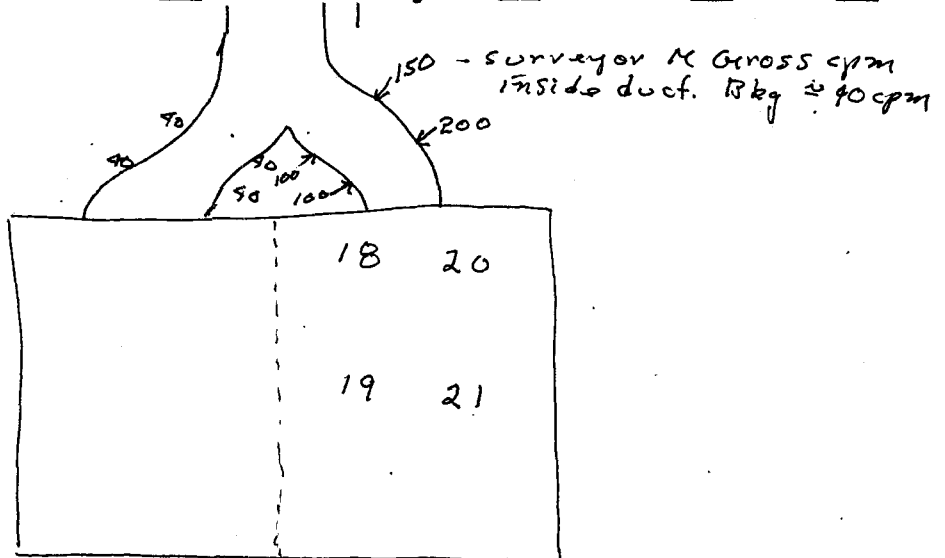 150 - Surveyor M Gross cpm
inside duct. Bkg ≈ 40 cpm
200
40
40
40
100
50
100
18 20
19 21